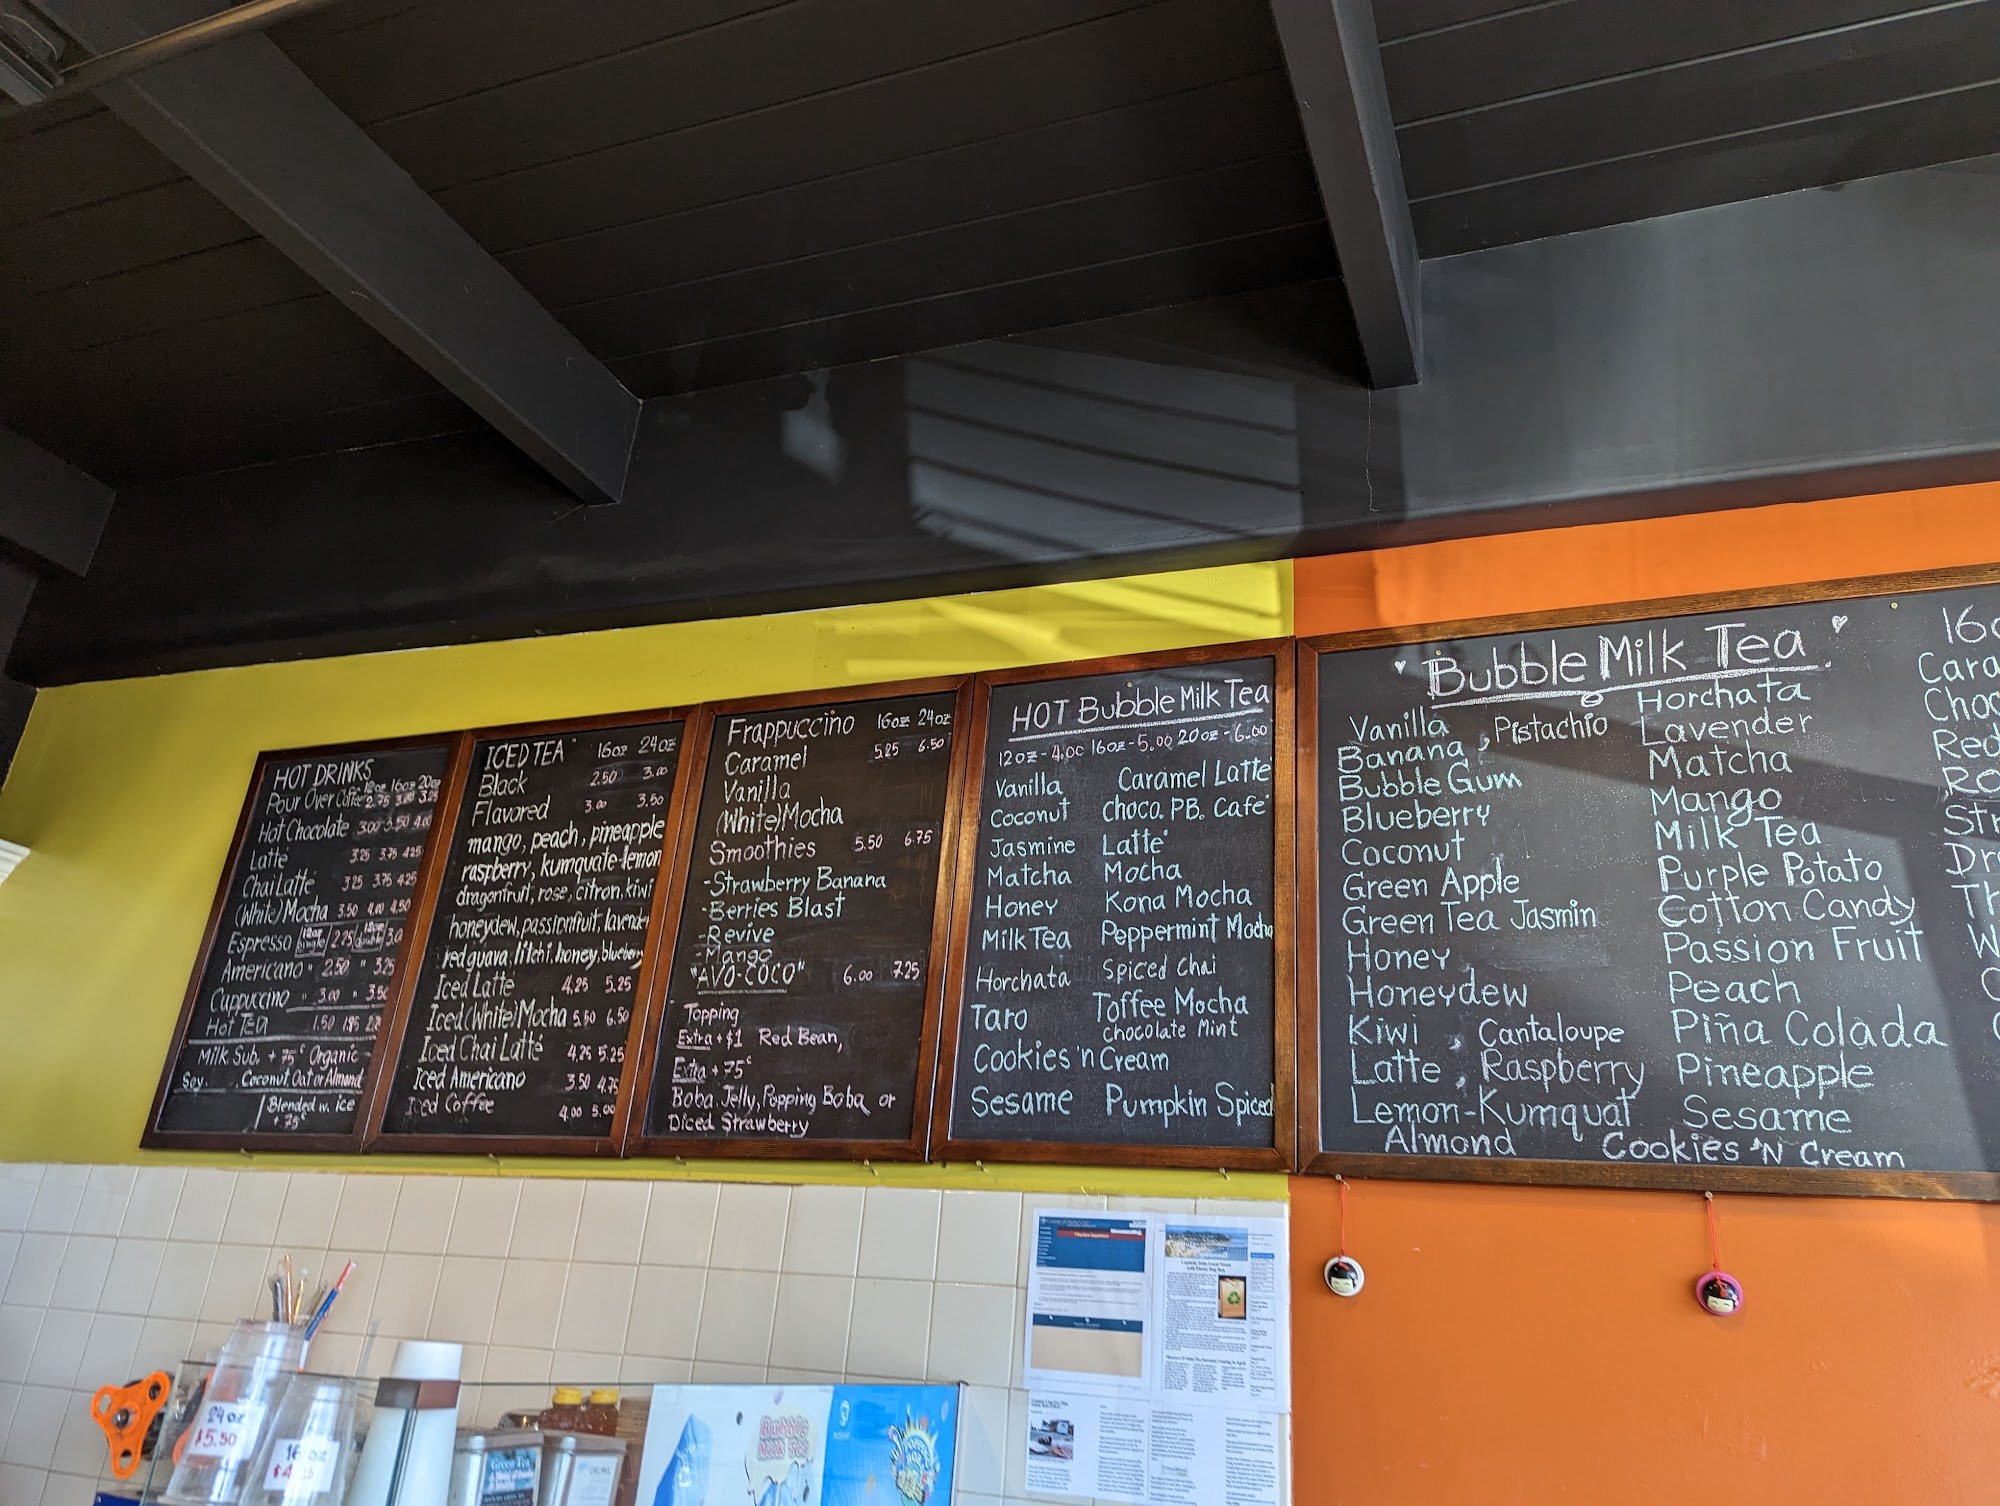 HOT DRINKS
12oz 16oz 20oz
Pour Over Coffee 2.75 3.00 3.25
Hot Chocolate 3.00 3.50 4.00
Latte 3.25 3.75 4.25
Chai Latte 3.25 3.75 4.25
(White) Mocha 3.50 4.00 4.50
Espresso 12oz single 2.25 12oz double 3.0
Americano " 2.50 " 3.25
Cappuccino " 3.00 " 3.50
Hot Tea 1.50 1.95
Milk Sub. + 75¢ Organic
Soy, Coconut, Oat or Almond
Blended w. ice
+ 75¢
ICED TEA 16oz 24oz
Black 2.50 3.00
Flavored 3.00 3.50
mango, peach, pineapple
raspberry, kumquate-lemon
dragonfruit, rose, citron, kiwi
honeydew, passionfruit, lavender
red guava, litchi, honey, blueberry
Iced Latte 4.25 5.25
Iced (White) Mocha 5.50 6.50
Iced Chai Latte 4.25 5.25
Iced Americano 3.50 4.75
Iced Coffee 4.00 5.00
Frappuccino 16oz 24oz
Caramel 5.25 6.50
Vanilla
(White) Mocha
Smoothies 5.50 6.75
-Strawberry Banana
-Berries Blast
-Revive
-Mango
"AVO-COCO" 6.00 7.25
Topping
Extra + $1 Red Bean,
Extra + 75¢
Boba, Jelly, Popping Boba or
Diced Strawberry
HOT Bubble Milk Tea
12oz-4.00 16oz-5.00 20oz-6.00
Vanilla Caramel Latte
Coconut choco. P.B. Cafe'
Jasmine Latte'
Matcha Mocha
Honey Kona Mocha
Milk Tea Peppermint Mocha
Horchata Spiced Chai
Taro Toffee Mocha
chocolate Mint
Cookies 'n Cream
Sesame Pumpkin Spiced
Bubble Milk Tea
Vanilla, Pistachio
Banana
Bubble Gum
Blueberry
Coconut
Green Apple
Green Tea Jasmin
Honey
Honeydew
Kiwi, Cantaloupe
Latte, Raspberry
Lemon-Kumquat
Almond
Horchata
Lavender
Matcha
Mango
Milk Tea
Purple Potato
Cotton Candy
Passion Fruit
Peach
Piña Colada
Pineapple
Sesame
Cookies 'N Cream
16o
Cara
Choc
Red
Ro
Str
Dr
Th
W
24oz
$5.50
16oz
Green Tea
Bubble
Milk Tea